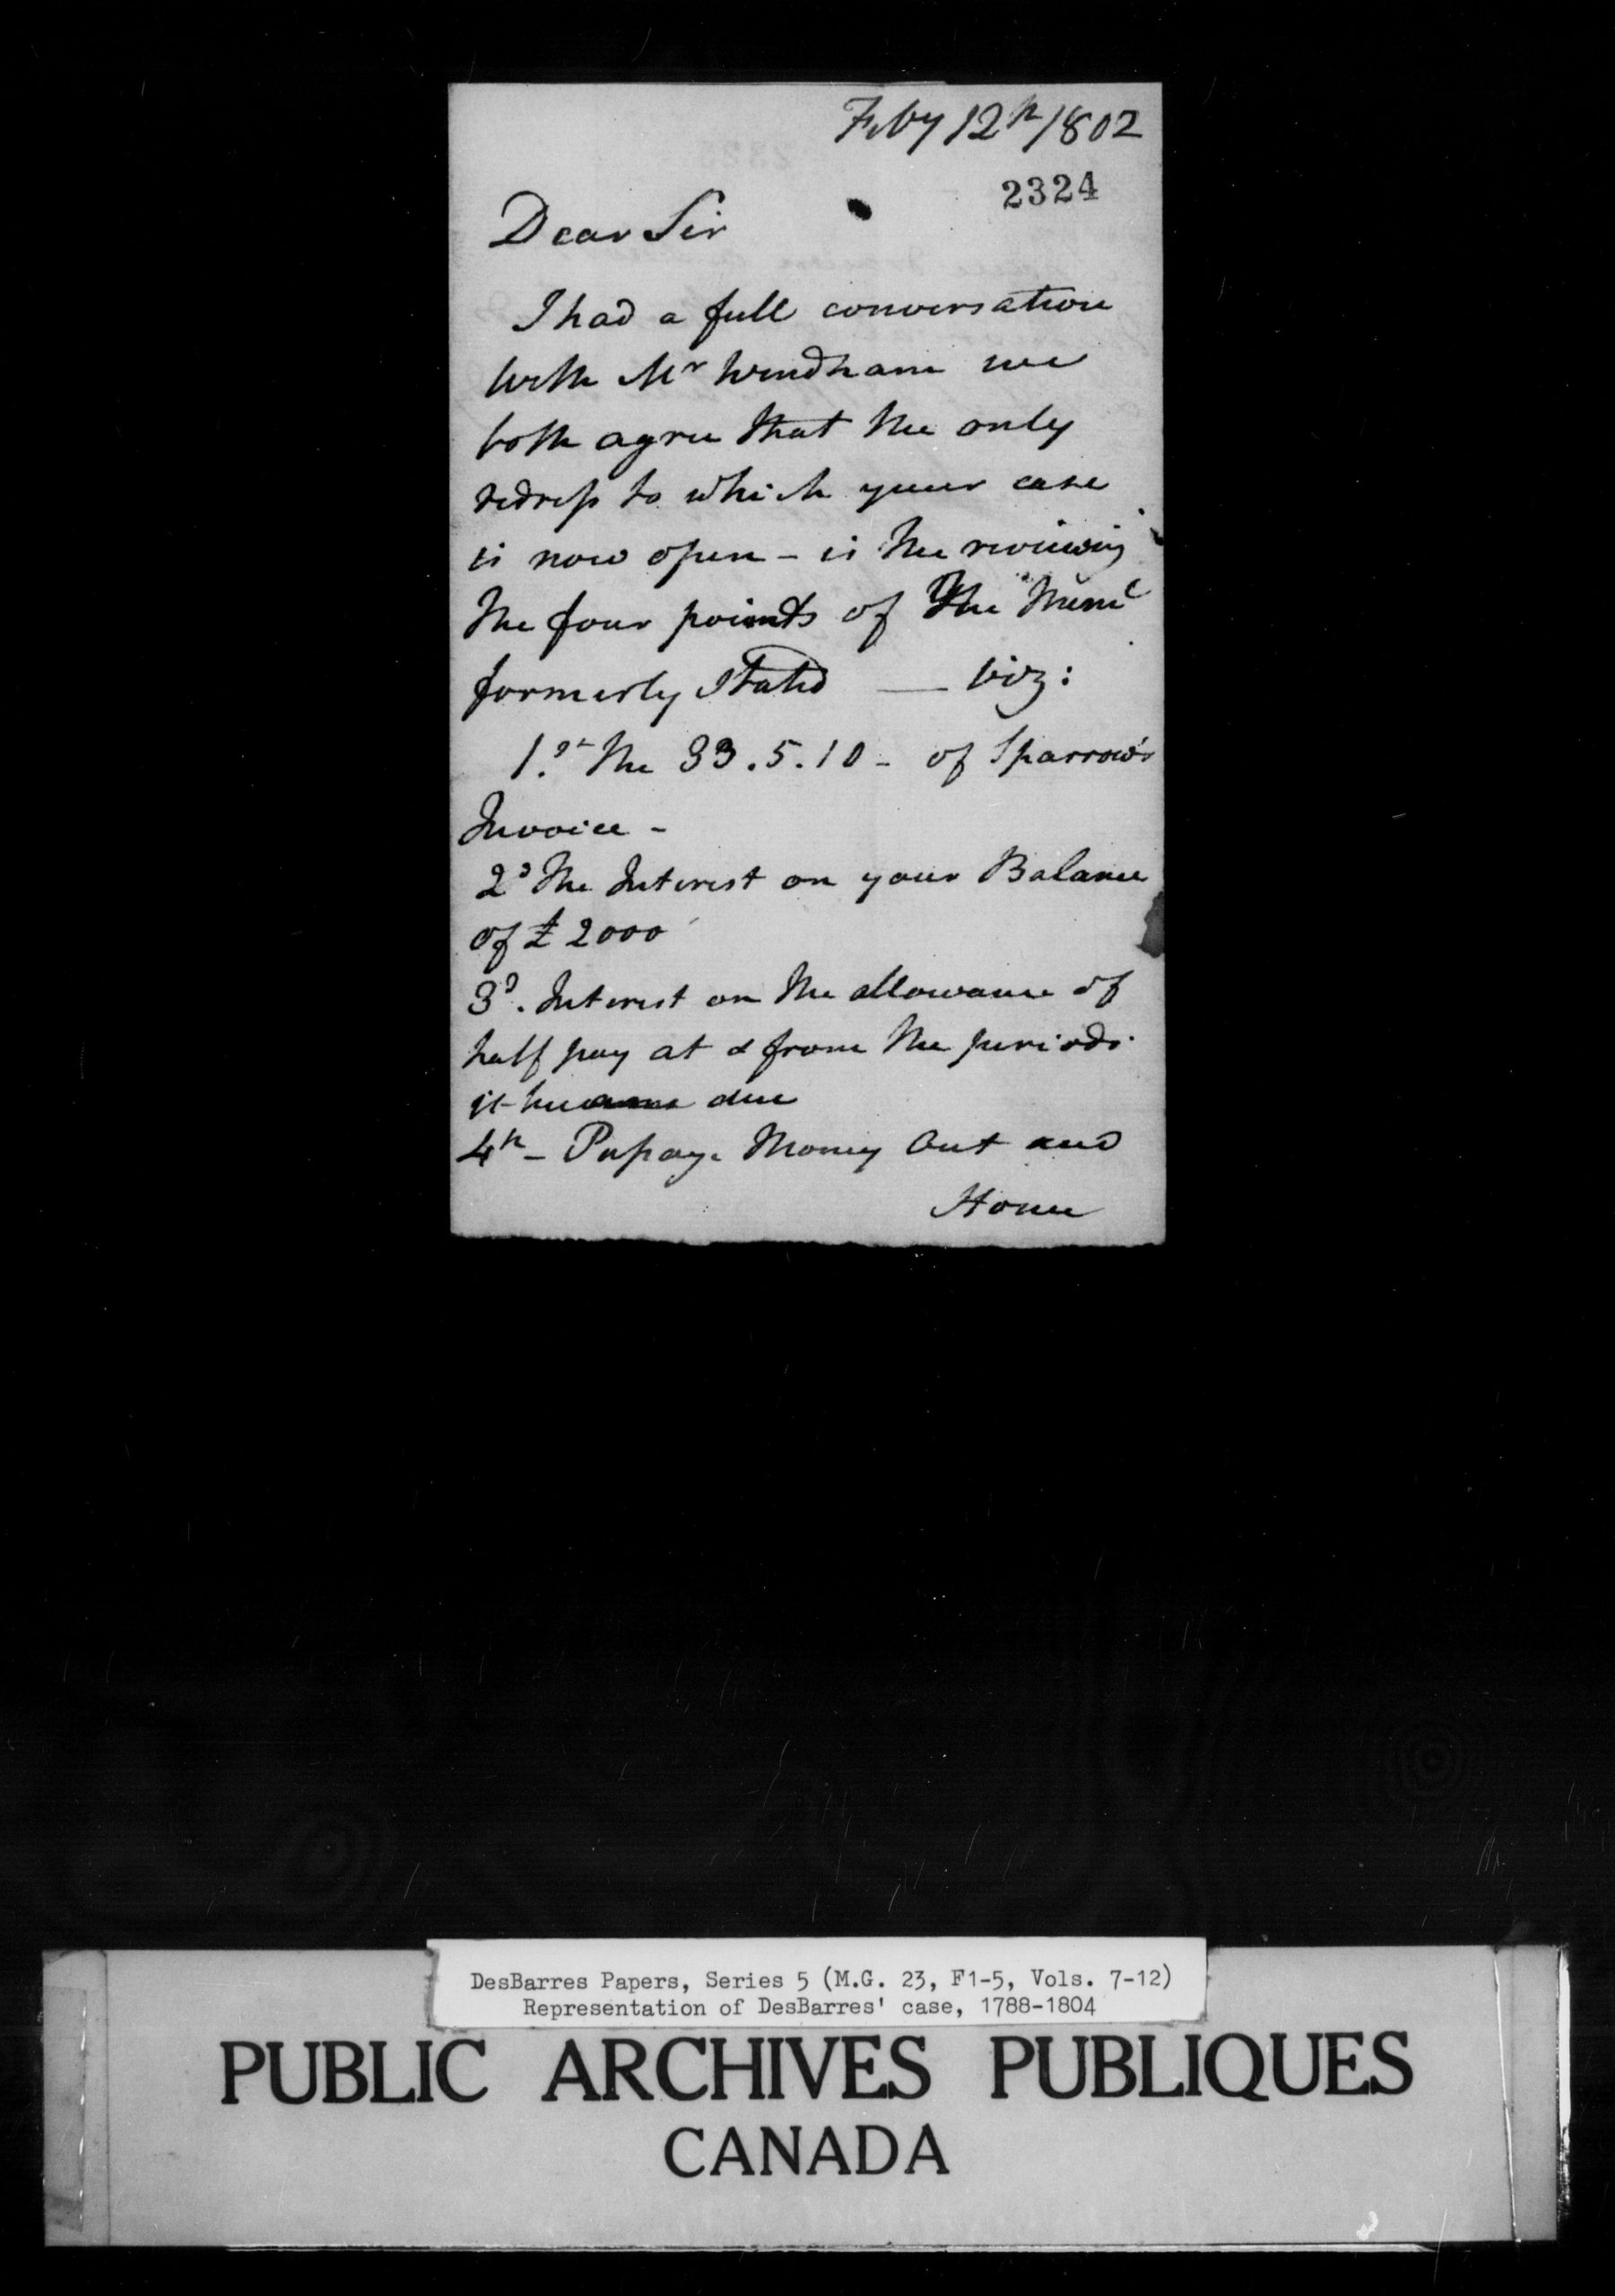 Feby 12th 1802
2324
Dear Sir
I had a full conversation
with Mr Windham we
both agree that the only
redress to which your case
is now open - is the reviewing
the four points of the
formerly stated — viz:
1.st The 33.5.10 - of Sparrow's
Invoice -
2d The Interest on your Balance
of £2000
3d. Interest on the allowance of
half pay at & from the periods
it became due
4th - Passage Money Out and
Home
DesBarres Papers, Series 5 (M.G. 23, F1-5, Vols. 7-12)
Representation of DesBarres' case, 1788-1804
PUBLIC ARCHIVES PUBLIQUES
CANADA